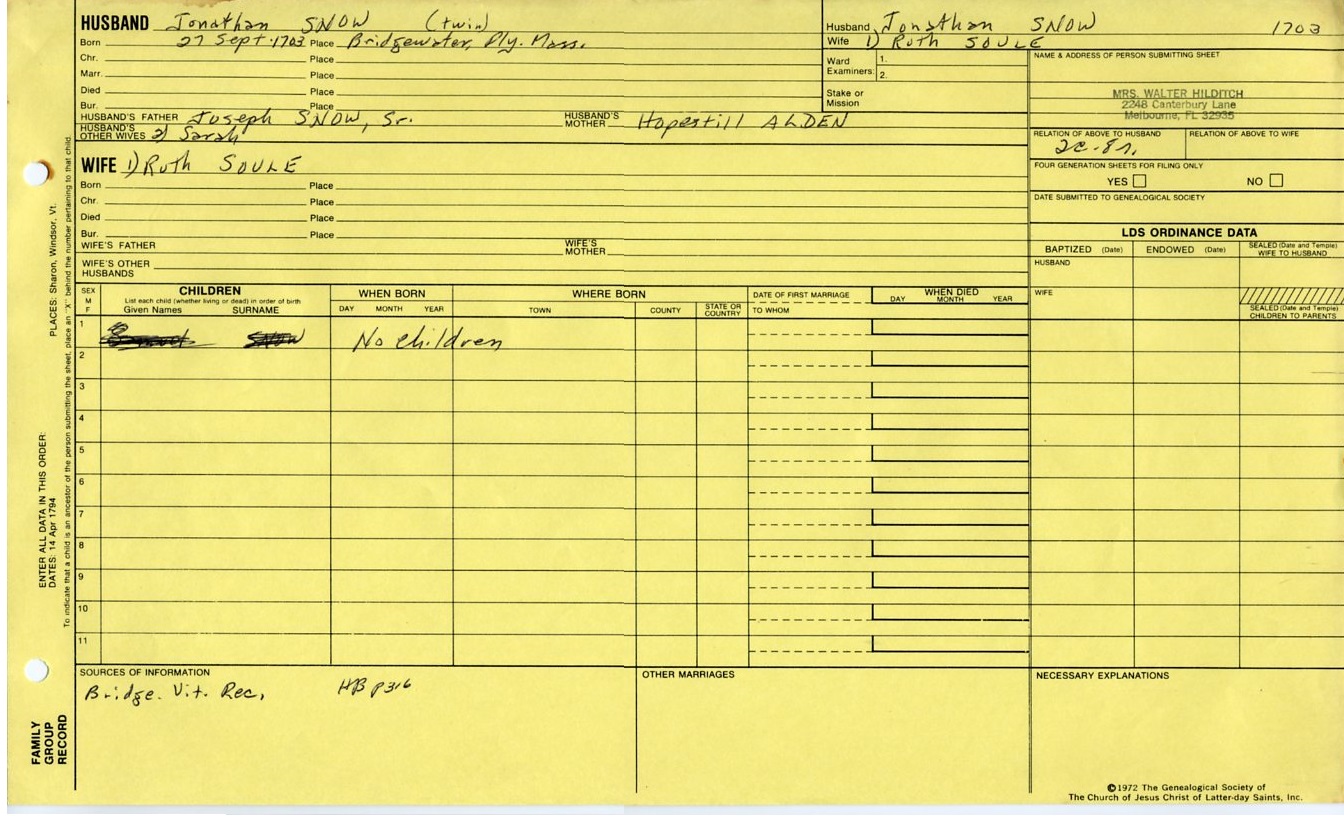 HUSBAND Jonathan SNOW (twin)
Born 27 Sept. 1703 Place Bridgewater, Ply. Mass.
Chr. Place
Marr. Place
Died Place
Bur. Place
HUSBAND'S FATHER Joseph SNOW, Sr. HUSBAND'S MOTHER Hopestill ALDEN
HUSBAND'S OTHER WIVES 2) Sarah
Husband Jonathan SNOW 1703
Wife 1) Ruth SOULE
Ward Examiners: 1.
2.
Stake or Mission
NAME & ADDRESS OF PERSON SUBMITTING SHEET
MRS. WALTER HILDITCH
2248 Canterbury Lane
Melbourne, FL 32935
RELATION OF ABOVE TO HUSBAND RELATION OF ABOVE TO WIFE
2c-8r.
FOUR GENERATION SHEETS FOR FILING ONLY
YES NO
DATE SUBMITTED TO GENEALOGICAL SOCIETY
WIFE 1) Ruth SOULE
Born Place
Chr. Place
Died Place
Bur. Place
WIFE'S FATHER WIFE'S MOTHER
WIFE'S OTHER HUSBANDS
LDS ORDINANCE DATA
BAPTIZED (Date) ENDOWED (Date) SEALED (Date and Temple) WIFE TO HUSBAND
HUSBAND
WIFE
SEALED (Date and Temple) CHILDREN TO PARENTS
SEX M F
CHILDREN
List each child (whether living or dead) in order of birth
Given Names SURNAME
WHEN BORN
DAY MONTH YEAR
WHERE BORN
TOWN COUNTY STATE OR COUNTRY
DATE OF FIRST MARRIAGE
TO WHOM
WHEN DIED
DAY MONTH YEAR
1 SNOW No children
2
3
4
5
6
7
8
9
10
11
SOURCES OF INFORMATION
Bridge. Vit. Rec, HB p316
OTHER MARRIAGES
NECESSARY EXPLANATIONS
©1972 The Genealogical Society of
The Church of Jesus Christ of Latter-day Saints, Inc.
PLACES: Sharon, Windsor, Vt.
ENTER ALL DATA IN THIS ORDER:
DATES: 14 Apr 1794
To indicate that a child is an ancestor of the person submitting the sheet, place an "X" behind the number pertaining to that child.
FAMILY
GROUP
RECORD